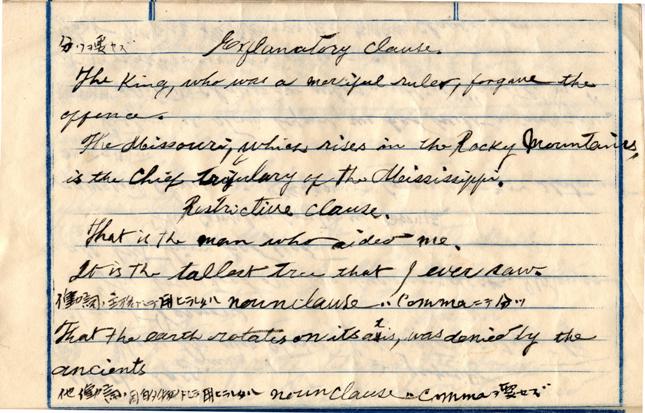 分ツヲ要セズ Explanatory clause.
The King, who was a merciful ruler, forgave the
offence.
The Missouri, which rises in the Rocky Mountains,
is the Chief tributary of the Mississippi.
Restrictive clause.
That is the man who aided me.
It is the tallest tree that I ever saw.
noun clause ハ Comma ニテ分ツ
That the earth rotates on its axis, was denied by the
ancients
noun clause ハ Comma ヲ要セズ